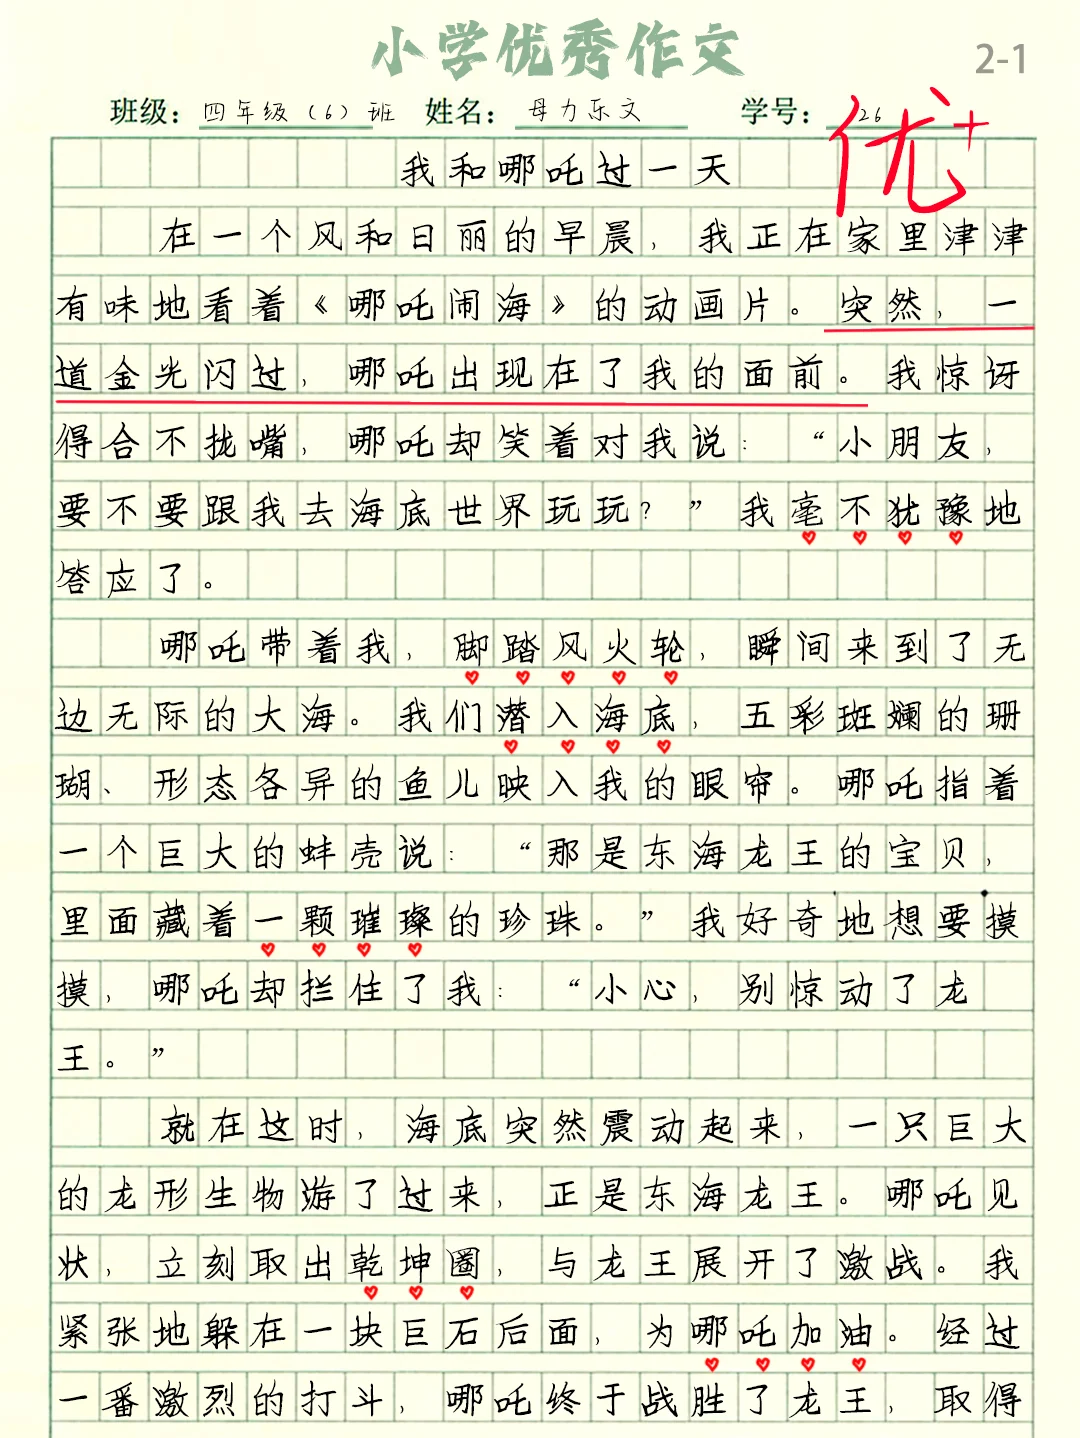 小学优秀作文
2-1
班级：四年级（6）班 姓名：母力乐文 学号：26
优+
我和哪吒过一天
在一个风和日丽的早晨，我正在家里津津
有味地看着《哪吒闹海》的动画片。突然，一
道金光闪过，哪吒出现在了我的面前。我惊讶
得合不拢嘴，哪吒却笑着对我说：“小朋友，
要不要跟我去海底世界玩玩？”我毫不犹豫地
答应了。
哪吒带着我，脚踏风火轮，瞬间来到了无
边无际的大海。我们潜入海底，五彩斑斓的珊
瑚、形态各异的鱼儿映入我的眼帘。哪吒指着
一个巨大的蚌壳说：“那是东海龙王的宝贝，
里面藏着一颗璀璨的珍珠。”我好奇地想要摸
摸，哪吒却拦住了我：“小心，别惊动了龙
王。”
就在这时，海底突然震动起来，一只巨大
的龙形生物游了过来，正是东海龙王。哪吒见
状，立刻取出乾坤圈，与龙王展开了激战。我
紧张地躲在一块巨石后面，为哪吒加油。经过
一番激烈的打斗，哪吒终于战胜了龙王，取得